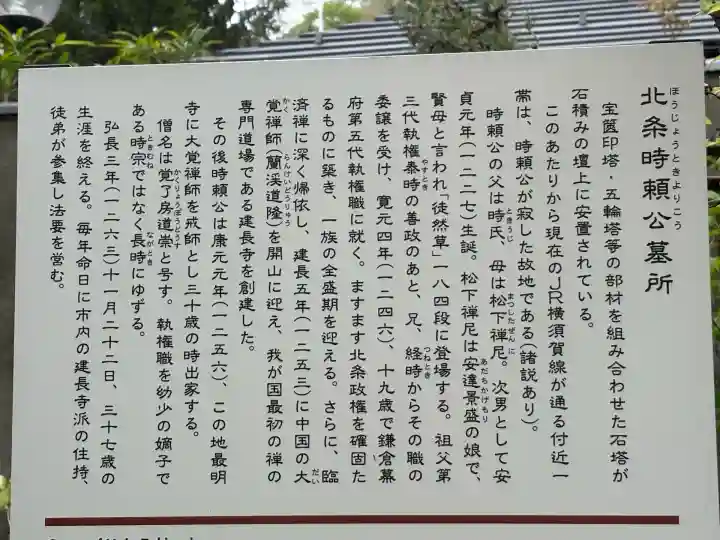 北条時頼公墓所
ほうじょうときよりこう
宝篋印塔・五輪塔等の部材を組み合わせた石塔が
石積みの壇上に安置されている。
このあたりから現在のＪＲ横須賀線が通る付近一
帯は、時頼公が寂した故地である(諸説あり)。
時頼公の父は時氏、母は松下禅尼。次男として安
ときうじ
まつしたぜんに
貞元年(一二二七)生誕。松下禅尼は安達景盛の娘で、
あだちかげもり
賢母と言われ「徒然草」一八四段に登場する。祖父第
三代執権泰時の善政のあと、兄、経時からその職の
やすとき
つねとき
委譲を受け、寛元四年(一二四六)、十九歳で鎌倉幕
府第五代執権職に就く。ますます北条政権を確固た
るものに築き、一族の全盛期を迎える。さらに、臨
済禅に深く帰依し、建長五年(一二五三)に中国の大
だい
覚禅師(蘭渓道隆)を開山に迎え、我が国最初の禅の
かく
らんけいどうりゅう
専門道場である建長寺を創建した。
その後時頼公は康元元年(一二五六)、この地最明
寺に大覚禅師を戒師とし三十歳の時出家する。
僧名は覚了房道崇と号す。執権職を幼少の嫡子で
かくりょうぼうどうす
ある時宗ではなく長時にゆずる。
ときむね
ながとき
弘長三年(一二六三)十一月二十二日、三十七歳の
生涯を終える。毎年命日に市内の建長寺派の住持、
徒弟が参集し法要を営む。